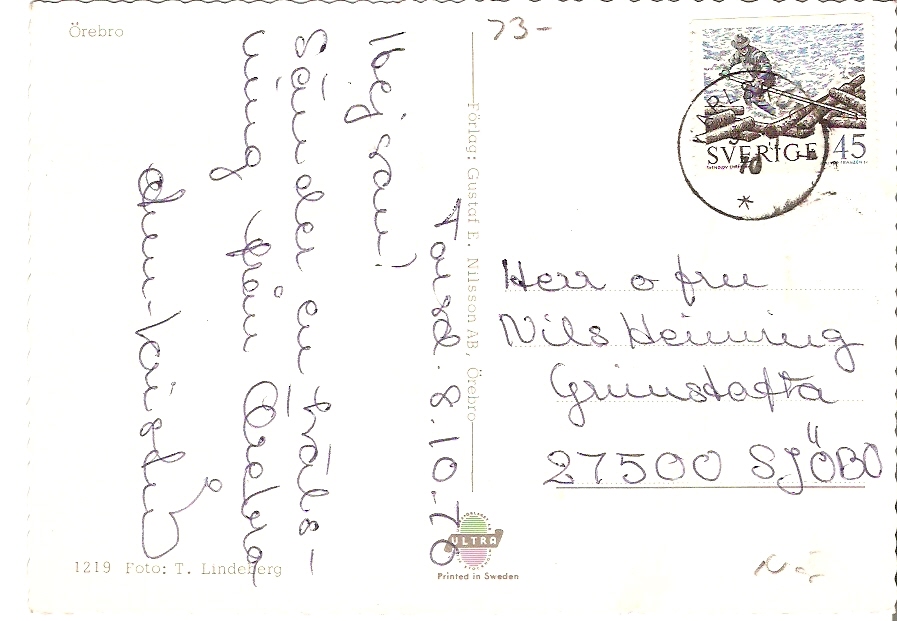 Örebro
73-
SVERIGE 45
70
Förlag: Gustaf E. Nilsson AB, Örebro
Torsd. 8.10.70
Hejsan!
Sänder en träls-
ning från Örebro
Herr o fru
Nils Henning
Grimstofta
27500 SJÖBO
ULTRA
Printed in Sweden
1219 Foto: T. Lindeberg